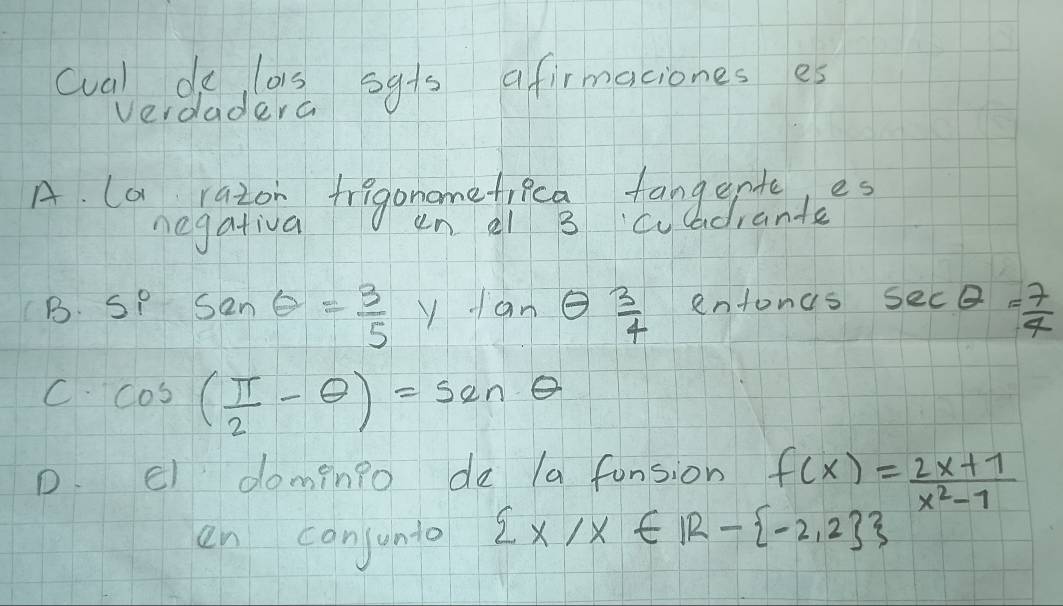 Cual de las sgts afirmaciones es
verdadera
A. La razon trigonometrica tangente, es
negativa en el 3 cuadrante
B. Si Sen θ = 3/5 y tan θ 3/4 entonces sec θ = 7/4
C. cos (π/2 - θ) = sen θ
D. El dominio de la funsion f(x) = 2x+1/x²-1
en conjunto {x/x ∈ R - {-2,2}}